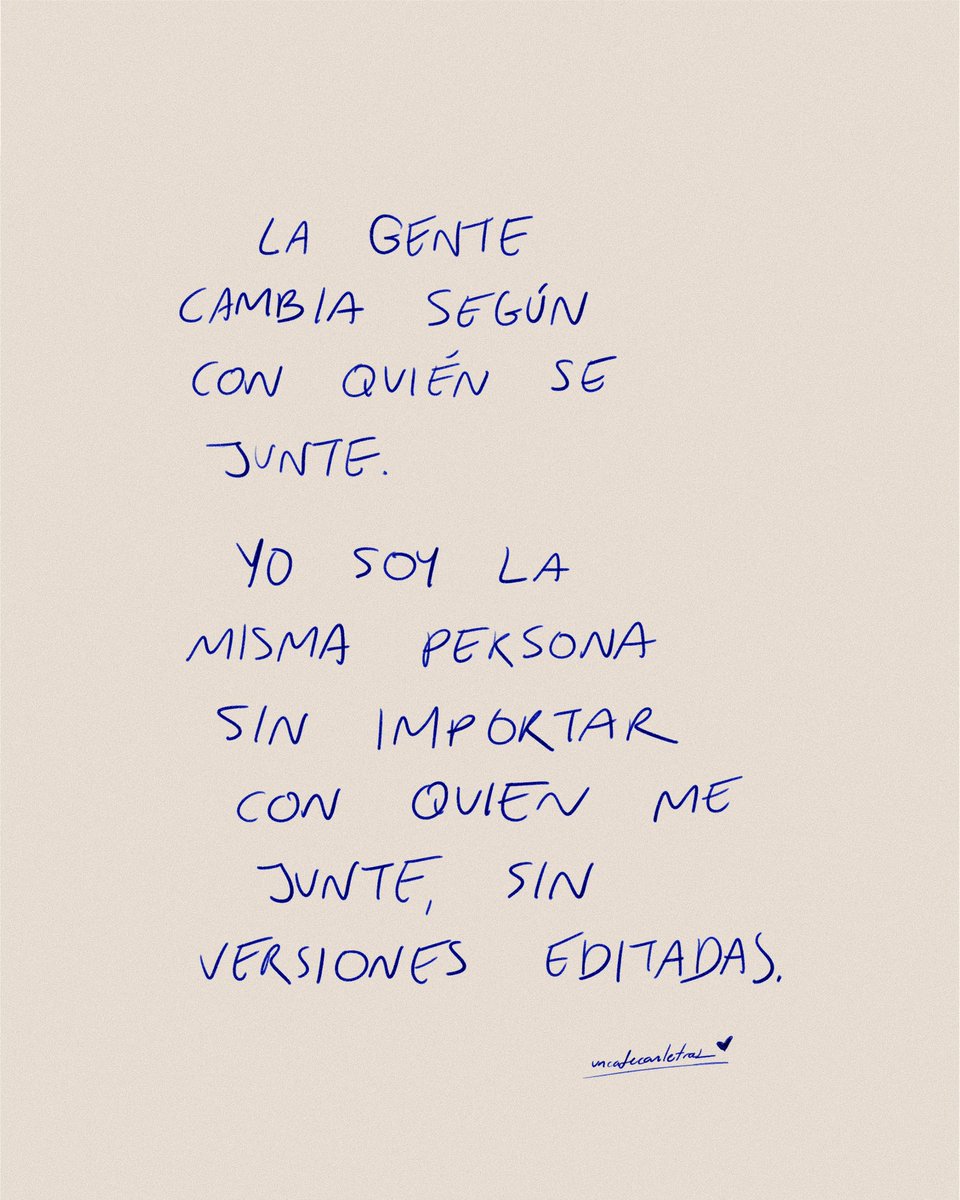 LA GENTE
CAMBIA SEGÚN
CON QUIÉN SE
JUNTE.
YO SOY LA
MISMA PERSONA
SIN IMPORTAR
CON QUIEN ME
JUNTE, SIN
VERSIONES EDITADAS.
uncafeconletras